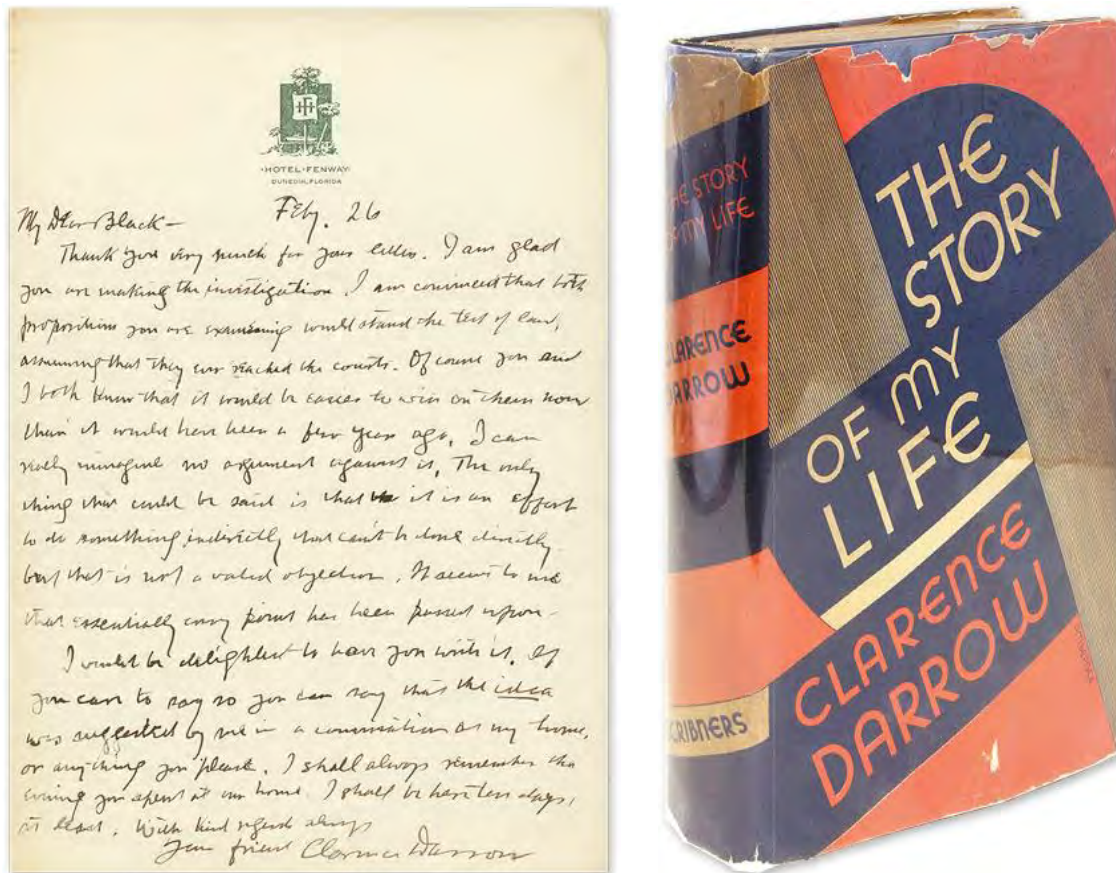 HOTEL FENWAY
DUNEDIN, FLORIDA
Feby. 26
My Dear Black —
Thank you very much for your letter. I am glad
you are making the investigation. I am convinced that both
propositions you are examining would stand the test of law,
assuming that they ever reached the courts. Of course you and
I both know that it would be easier to win on them now
than it would have been a few years ago. I can
really imagine no argument against it. The only
thing that could be said is that it is an effort
to do something indirectly that can't be done directly
but that is not a valid objection. It seems to me
that essentially every point has been passed upon —
I would be delighted to have you write it. If
you care to say so you can say that the idea
was suggested by me in a conversation at my home,
or anything you please. I shall always remember the
evening you spent at our home. I shall be here ten days,
at least. With kind regards always
Your friend Clarence Darrow
THE STORY
OF MY LIFE
CLARENCE
DARROW
SCRIBNERS
THE
STORY
OF MY
LIFE
CLARENCE
DARROW